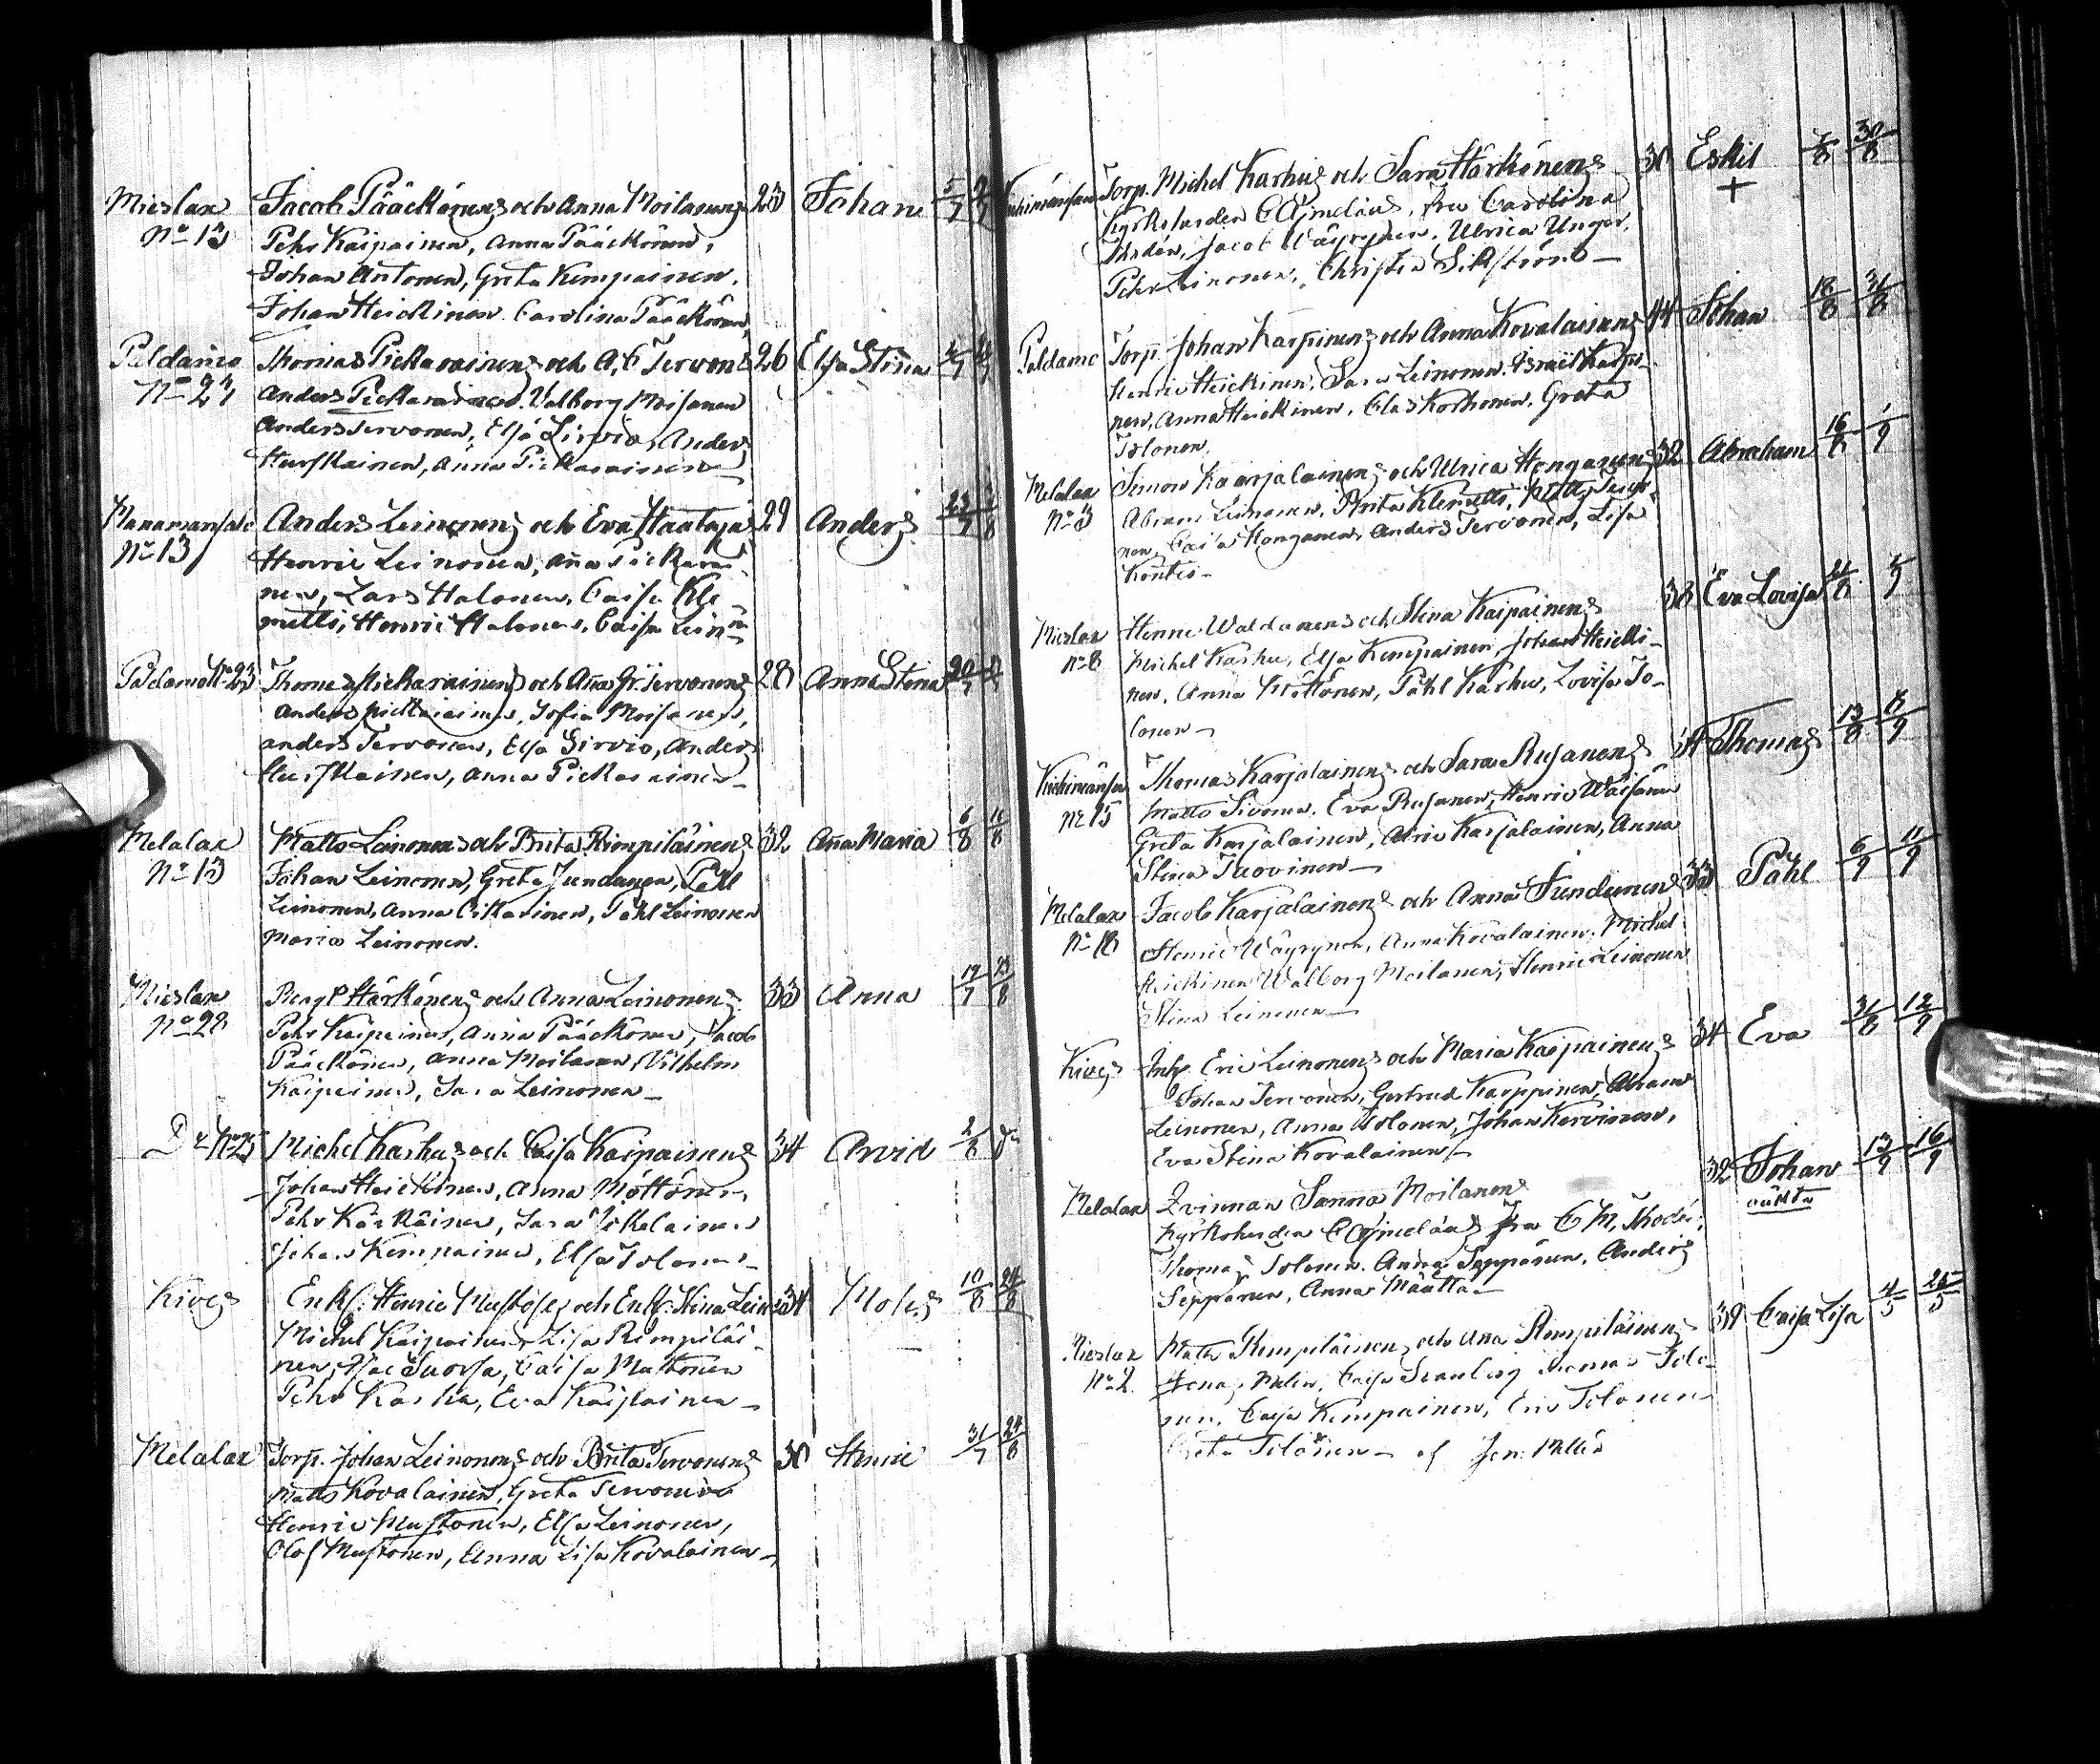 Mieslax Jacob Pääckönens och Anna Moilanens 23 Johan 5/7
No 13 Pehr Kaipainen, Anna Pääckönen,
Johan Antonen, Greta Kempainen,
Johan Heickinen. Carolina Pääckönen
Paldamo Thomas Pickarainens och A. C. Tervonens 26 Elsa Stina
No 23 Anders Pickarainen. Valborg Moisanen
Anders Tervonen, Elsa Sirviö, Anders
Heiskainen, Anna Pickarainen
Manamansalo Anders Leinonens och Eva Haatajas 29 Anders 23/7
No 13 Henric Leinonen, Anna Pickarai-
nen, Lars Halonen, Caisa Kle-
metti, Henric Halonen, Caisa Lein
Paldamo No 23 Thomas Pickarainens och Anna Tervonens 28 Anna Stina 20/7
Anders Pickarainen, Sofia Moisanen,
Anders Tervonen, Elsa Sirviö, Anders
Heiskainen, Anna Pickarainen
Melalax Matts Leinonens och Brita Rimpiläinens 32 Anna Maria 6/8 10/8
No 13 Johan Leinonen, Greta Jundunen, Påhl
Leinonen, Anna Pikarinen, Påhl Leinonen
Maria Leinonen.
Mieslax Bengt Härkönens och Anna Leinonens 33 Anna 19/7 23/8
No 28 Pehr Kaipainen, Anna Pääckönen, Jacob
Pääckönen, Anna Moilanen, Vilhelm
Kaipainen, Sara Leinonen
Do No 25 Michel Karhus och Caisa Kaipainens 34 Arvid 2/8 do
Johan Heickinen, Anna Möttönen,
Pehr Kärkäinen, Sara Mikelainen
Johan Kempainen, Elsa Tolonen
Kives Enkl. Henric Mustoses och Enk. Stina Lein 34 Moses 10/8 24/8
Michel Kaipainen, Lisa Rimpiläi-
nen, Isac Suorsa, Caisa Mustonen
Pehr Karhu, Eva Kaipainen
Melalax Torp. Johan Leinonens och Brita Tervonens 30 Henric 31/7 24/8
Matts Kovalainen, Greta Tervonen
Henric Mustonen, Elsa Leinonen,
Olof Mustonen, Anna Lisa Kovalainen
Torp. Michel Karhus och Sara Härkönens 30 Eskil 7/8 30/8
Kyrkoherden C. Ajmelæus, fru Carolina +
Thodén, Jacob Väyrynen, Ulrica Unger,
Pehr Leinonen, Christin Sikström
Paldamo Torp. Johan Karpinens och Anna Kovalainens 44 Johan 18/8 31/8
Henric Heickinen, Sara Leinonen, Israel Karpi-
nen, Anna Heickinen, Clas Korhonen, Greta
Tolonen.
Melalax Simon Kaarjalainens och Ulrica Honganens 32 Abraham 16/8 1/9
No 3 Abram Leinonen, Brita Klemetti, Matts Tervo-
nen, Caisa Honganen, Anders Tervonen, Lisa
Kontio
Mieslax Henric Waldanens och Stina Kaipainens 33 Eva Lovisa
No 8 Michel Karhu, Elsa Kempainen, Johan Heicki-
nen, Anna Möttönen, Påhl Karhu, Lovisa To-
lonen
Thomas Karjalainens och Sara Rusanens Thomas 13/8 8/9
No 15 Matts Sivonen, Eva Rusanen, Henric Wäisänen
Greta Karjalainen, Adric Karjalainen, Anna
Stina Tuovinen
Melalax Jacob Karjalainens och Anna Jundunens 33 Påhl 6/9 11/9
No 18 Henric Wäyrynen, Anna Kovalainen, Michel
Heickinen Walborg Moilanen, Henric Leinonen
Stina Leinonen
Kives Inh. Eric Leinonens och Maria Kaipainens 34 Eva 31/8 12/9
Johan Tervonen, Gertrud Karppinen, Abram
Leinonen, Anna Tolonen, Johan Kervinen,
Eva Stina Kovalainen
Melalax Qvinnan Sanna Moilanens 32 Johan 13/9 16/9
Kyrkoherden C Ajmelæus Fru C. M. Thodén, oäkta
Thomas Tolonen. Anna Seppänen, Anders
Seppänen, Anna Määttä
Mieslax Matts Rimpiläinens och Anna Rimpiläinens 39 Caisa Lisa 4/5 25/5
No 2 Jonas Malin, Caisa Thomas Tolo-
nen, Caisa Kempainen, Eric Tolonen
Greta Tolonen af Jon. Malin